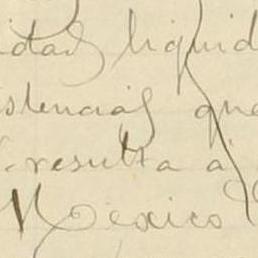 idad liquid
istencia que
resulta á
Mexico